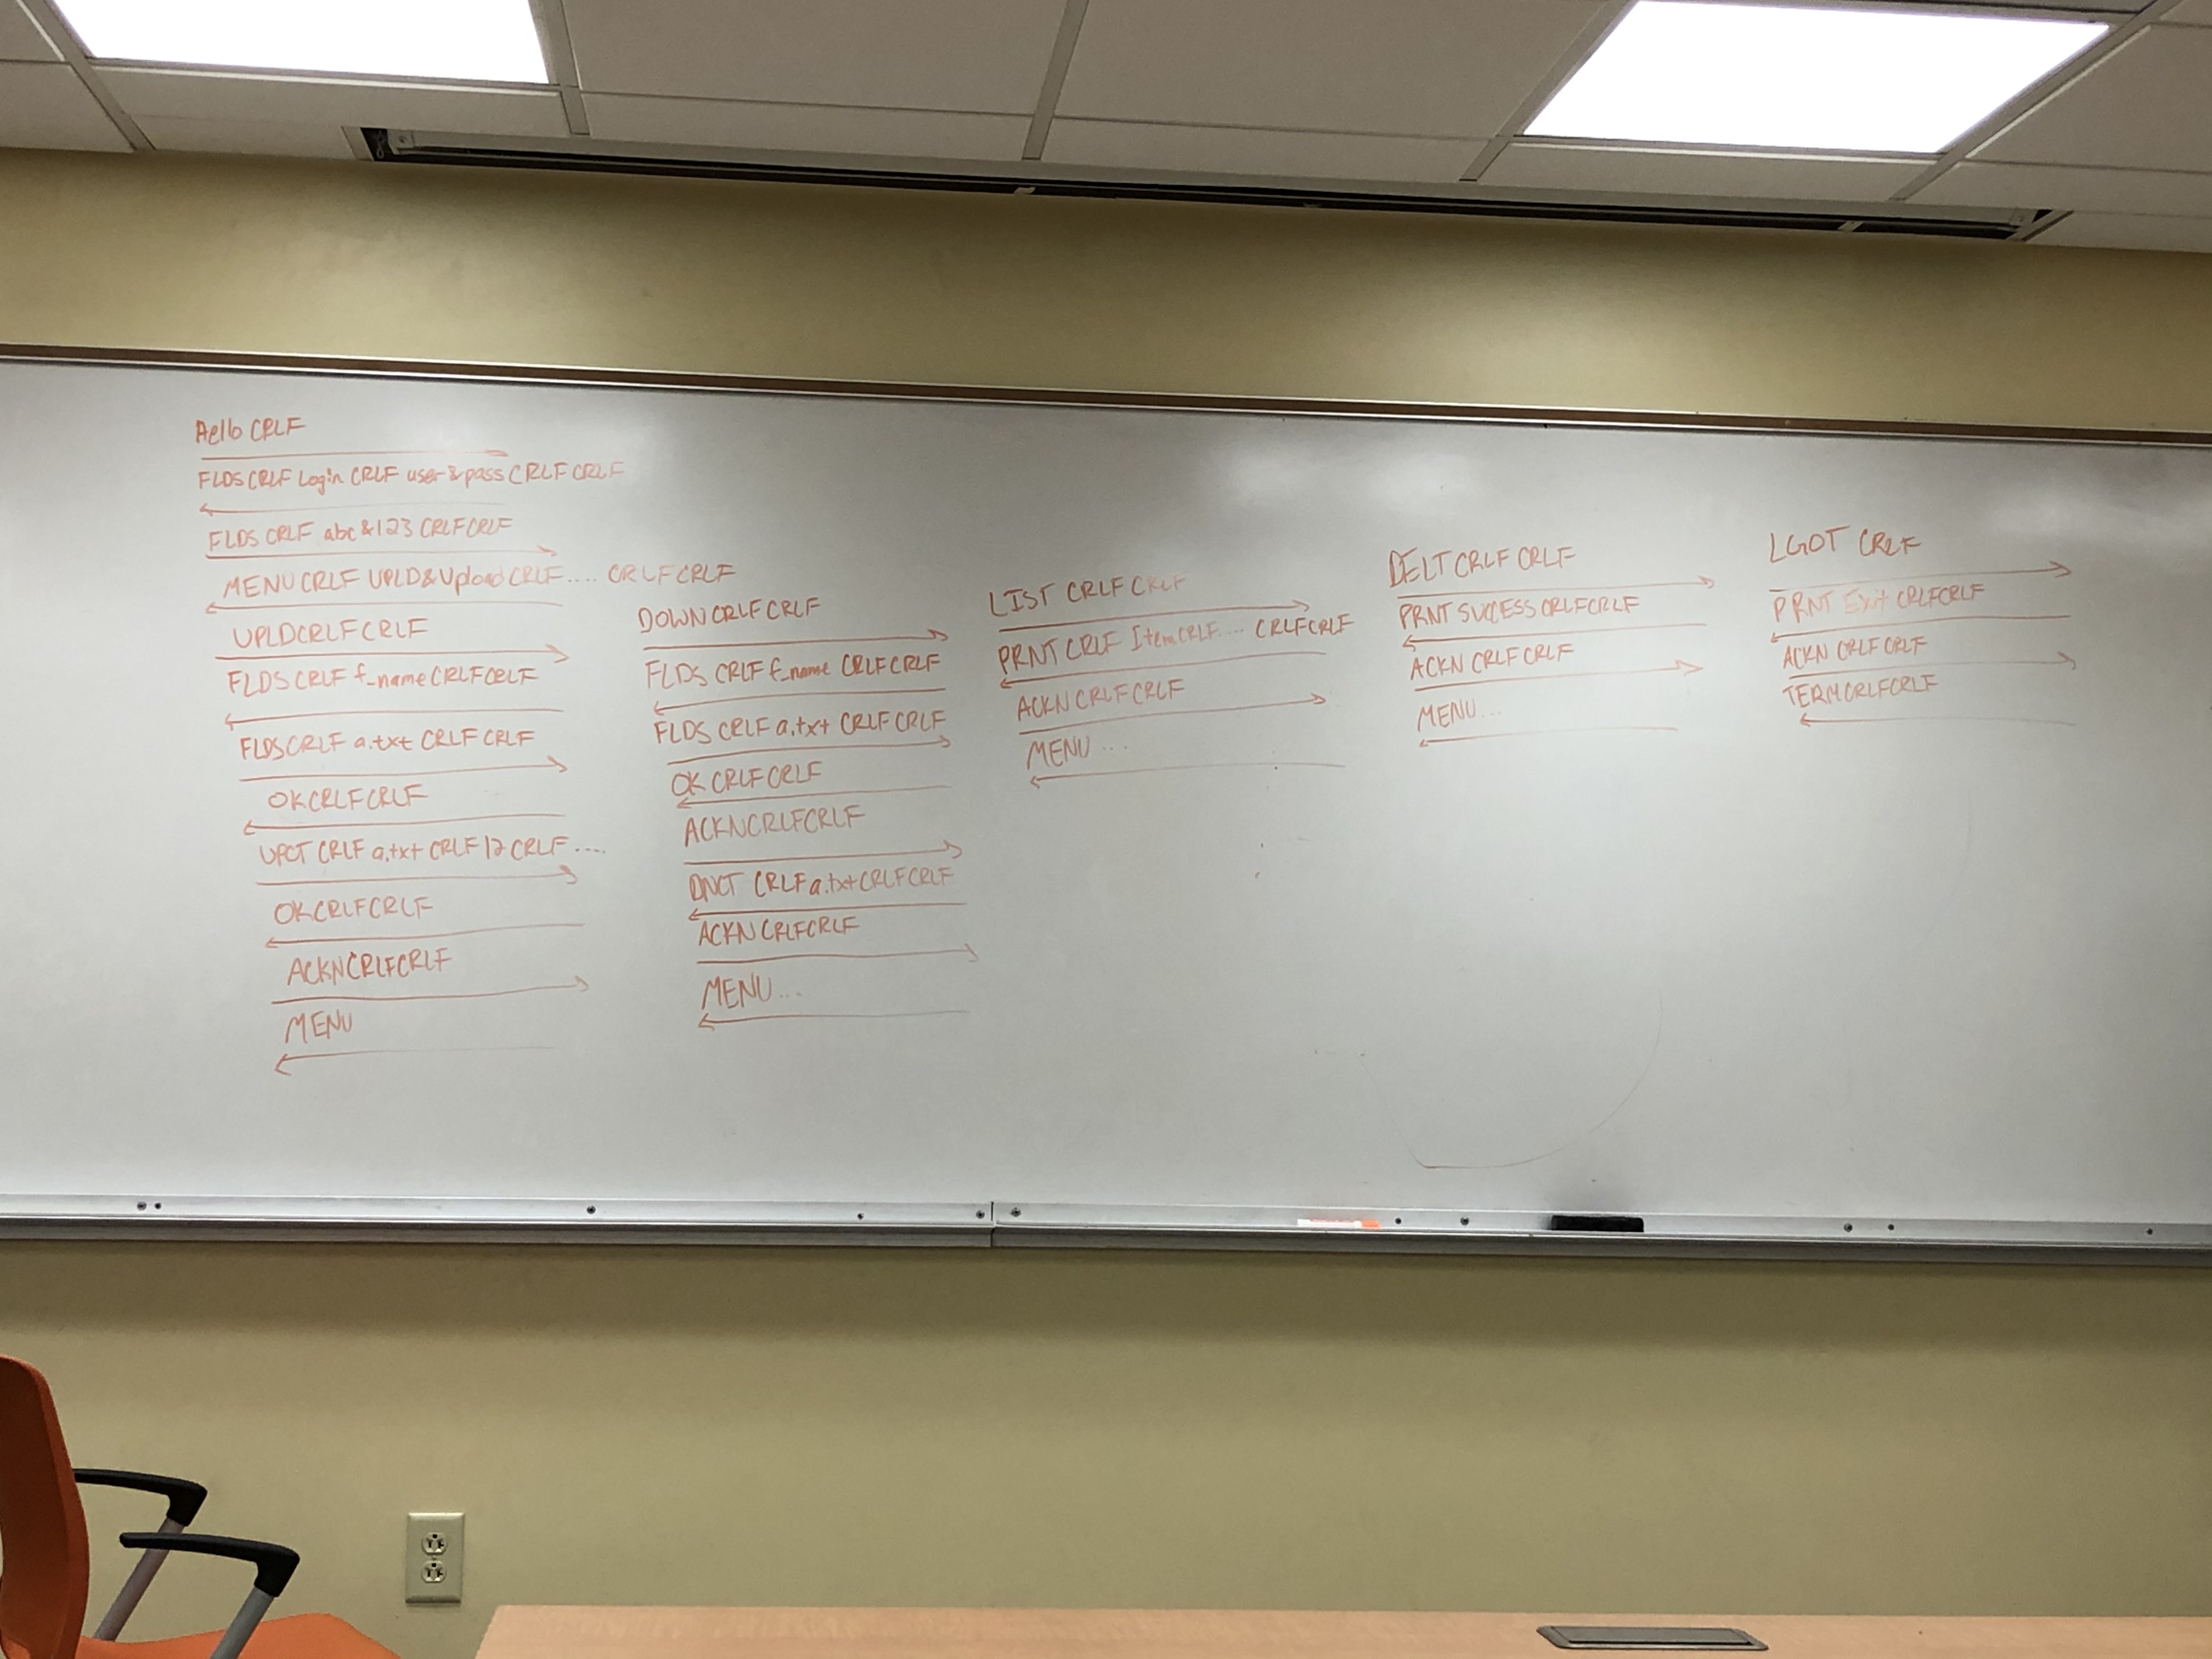 Hello CRLF
FLDS CRLF Login CRLF user&pass CRLF CRLF
FLDS CRLF abc&123 CRLF CRLF
MENU CRLF UPLD&Upload CRLF.... CRLF CRLF
UPLD CRLF CRLF
FLDS CRLF f_name CRLF CRLF
FLDS CRLF a.txt CRLF CRLF
OK CRLF CRLF
UPCT CRLF a.txt CRLF 12 CRLF....
OK CRLF CRLF
ACKN CRLF CRLF
MENU
DOWN CRLF CRLF
FLDS CRLF f_name CRLF CRLF
FLDS CRLF a.txt CRLF CRLF
OK CRLF CRLF
ACKN CRLF CRLF
DNCT CRLF a.txt CRLF CRLF
ACKN CRLF CRLF
MENU...
LIST CRLF CRLF
PRNT CRLF Item CRLF.... CRLF CRLF
ACKN CRLF CRLF
MENU...
DELT CRLF CRLF
PRNT SUCCESS CRLF CRLF
ACKN CRLF CRLF
MENU...
LGOT CRLF
PRNT Exit CRLF CRLF
ACKN CRLF CRLF
TERM CRLF CRLF